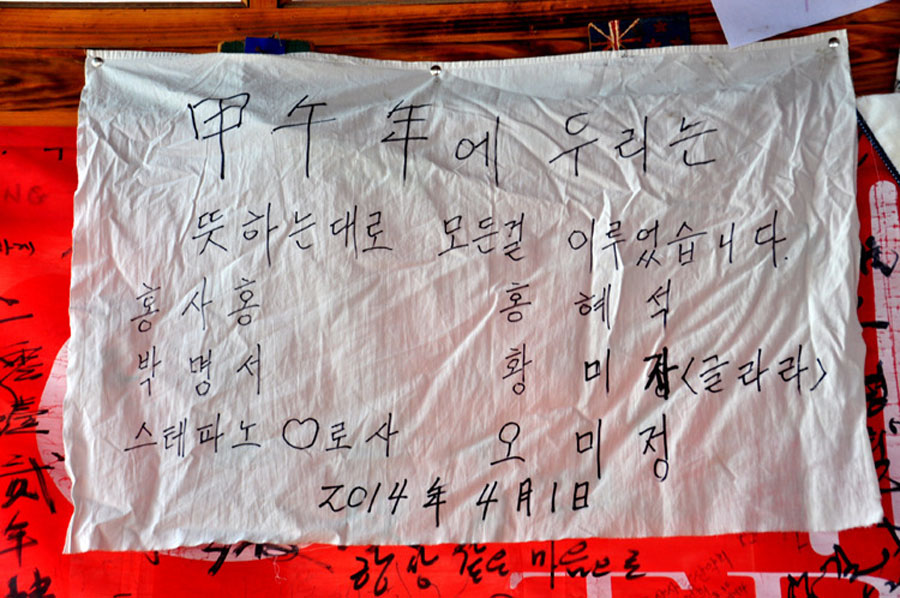 甲午年에 우리는
뜻하는대로 모든걸 이루었습니다.
홍사홍 홍혜석
박명서 황미장<글라라>
스테파노 ♡로사 오미정
2014年 4月1日
항상 같은 마음으로
NG
年